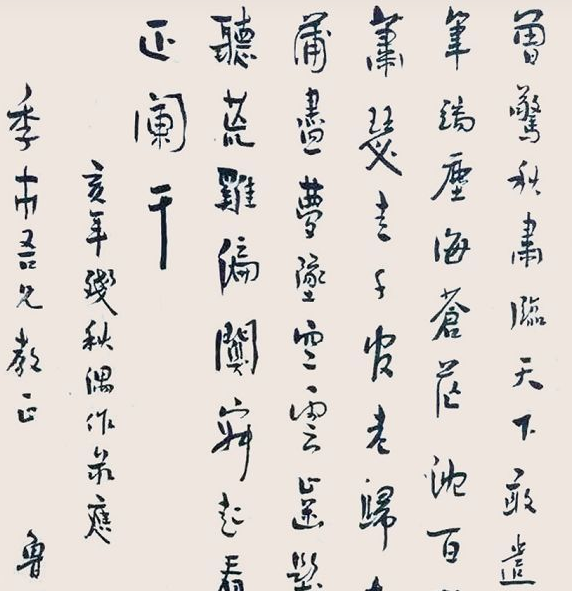 曾驚秋肅臨天下敢遣
筆端塵海蒼茫沈百
蕭瑟走千官老歸
蒲盡夢墜空雲齒髮
聽荒雞偏闃寂起看
正闌干
亥年殘秋偶作錄應
季市吾兄教正 魯